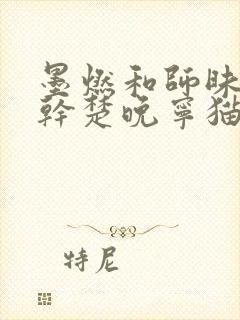 墨燃和師昧
幹楚晚寧猫
特尼